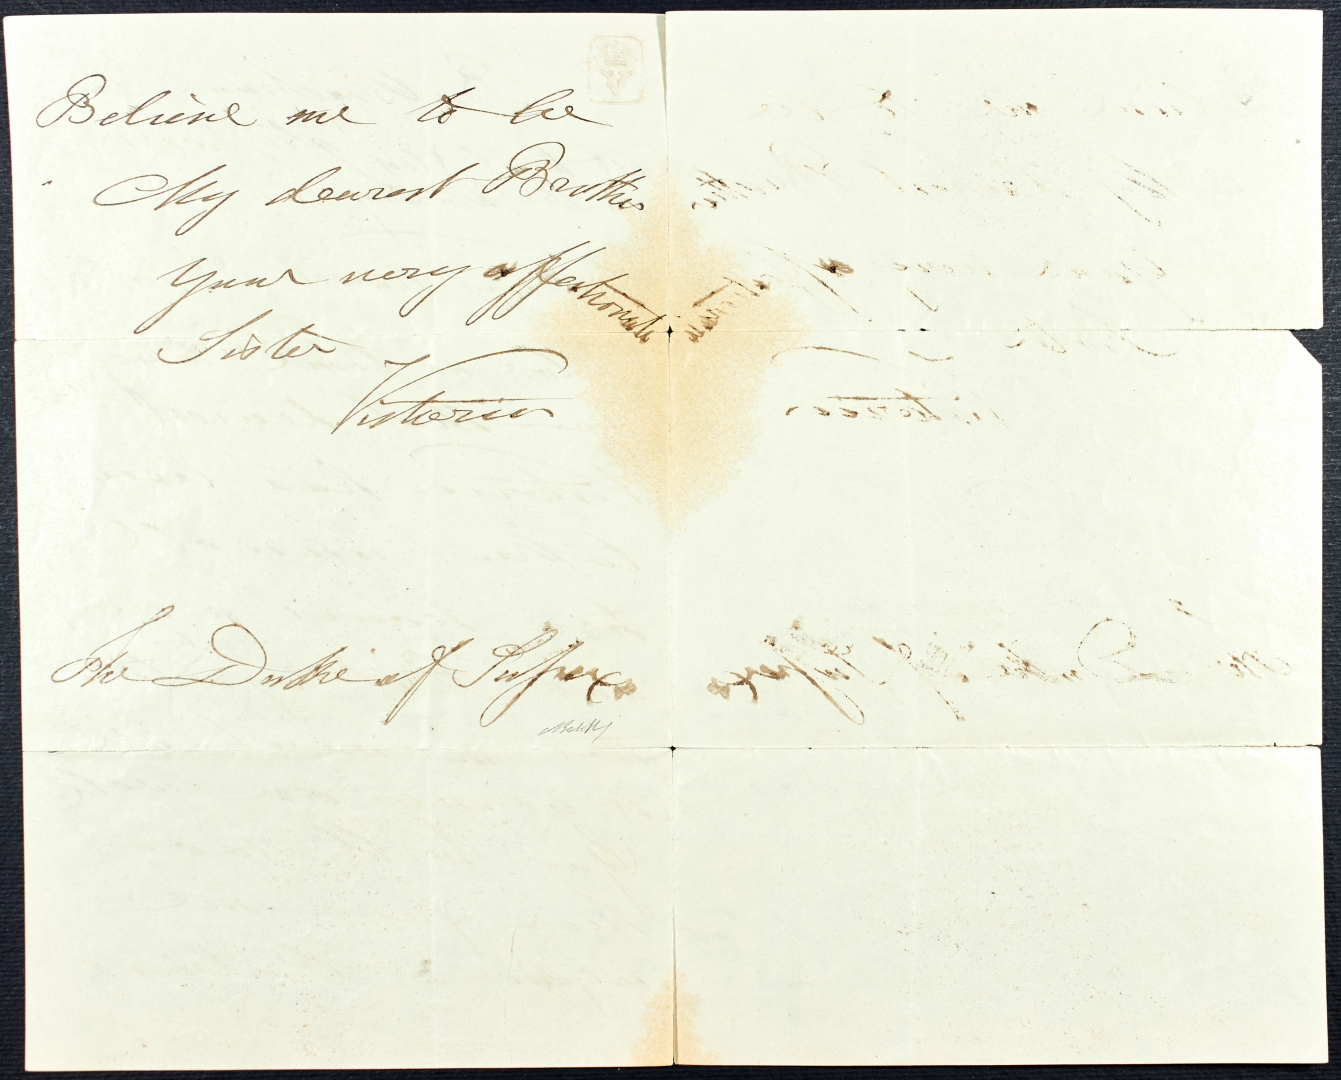 Believe me to be
My dearest Brother
your very affectionate
Sister
Victoria
The Duke of Sussex